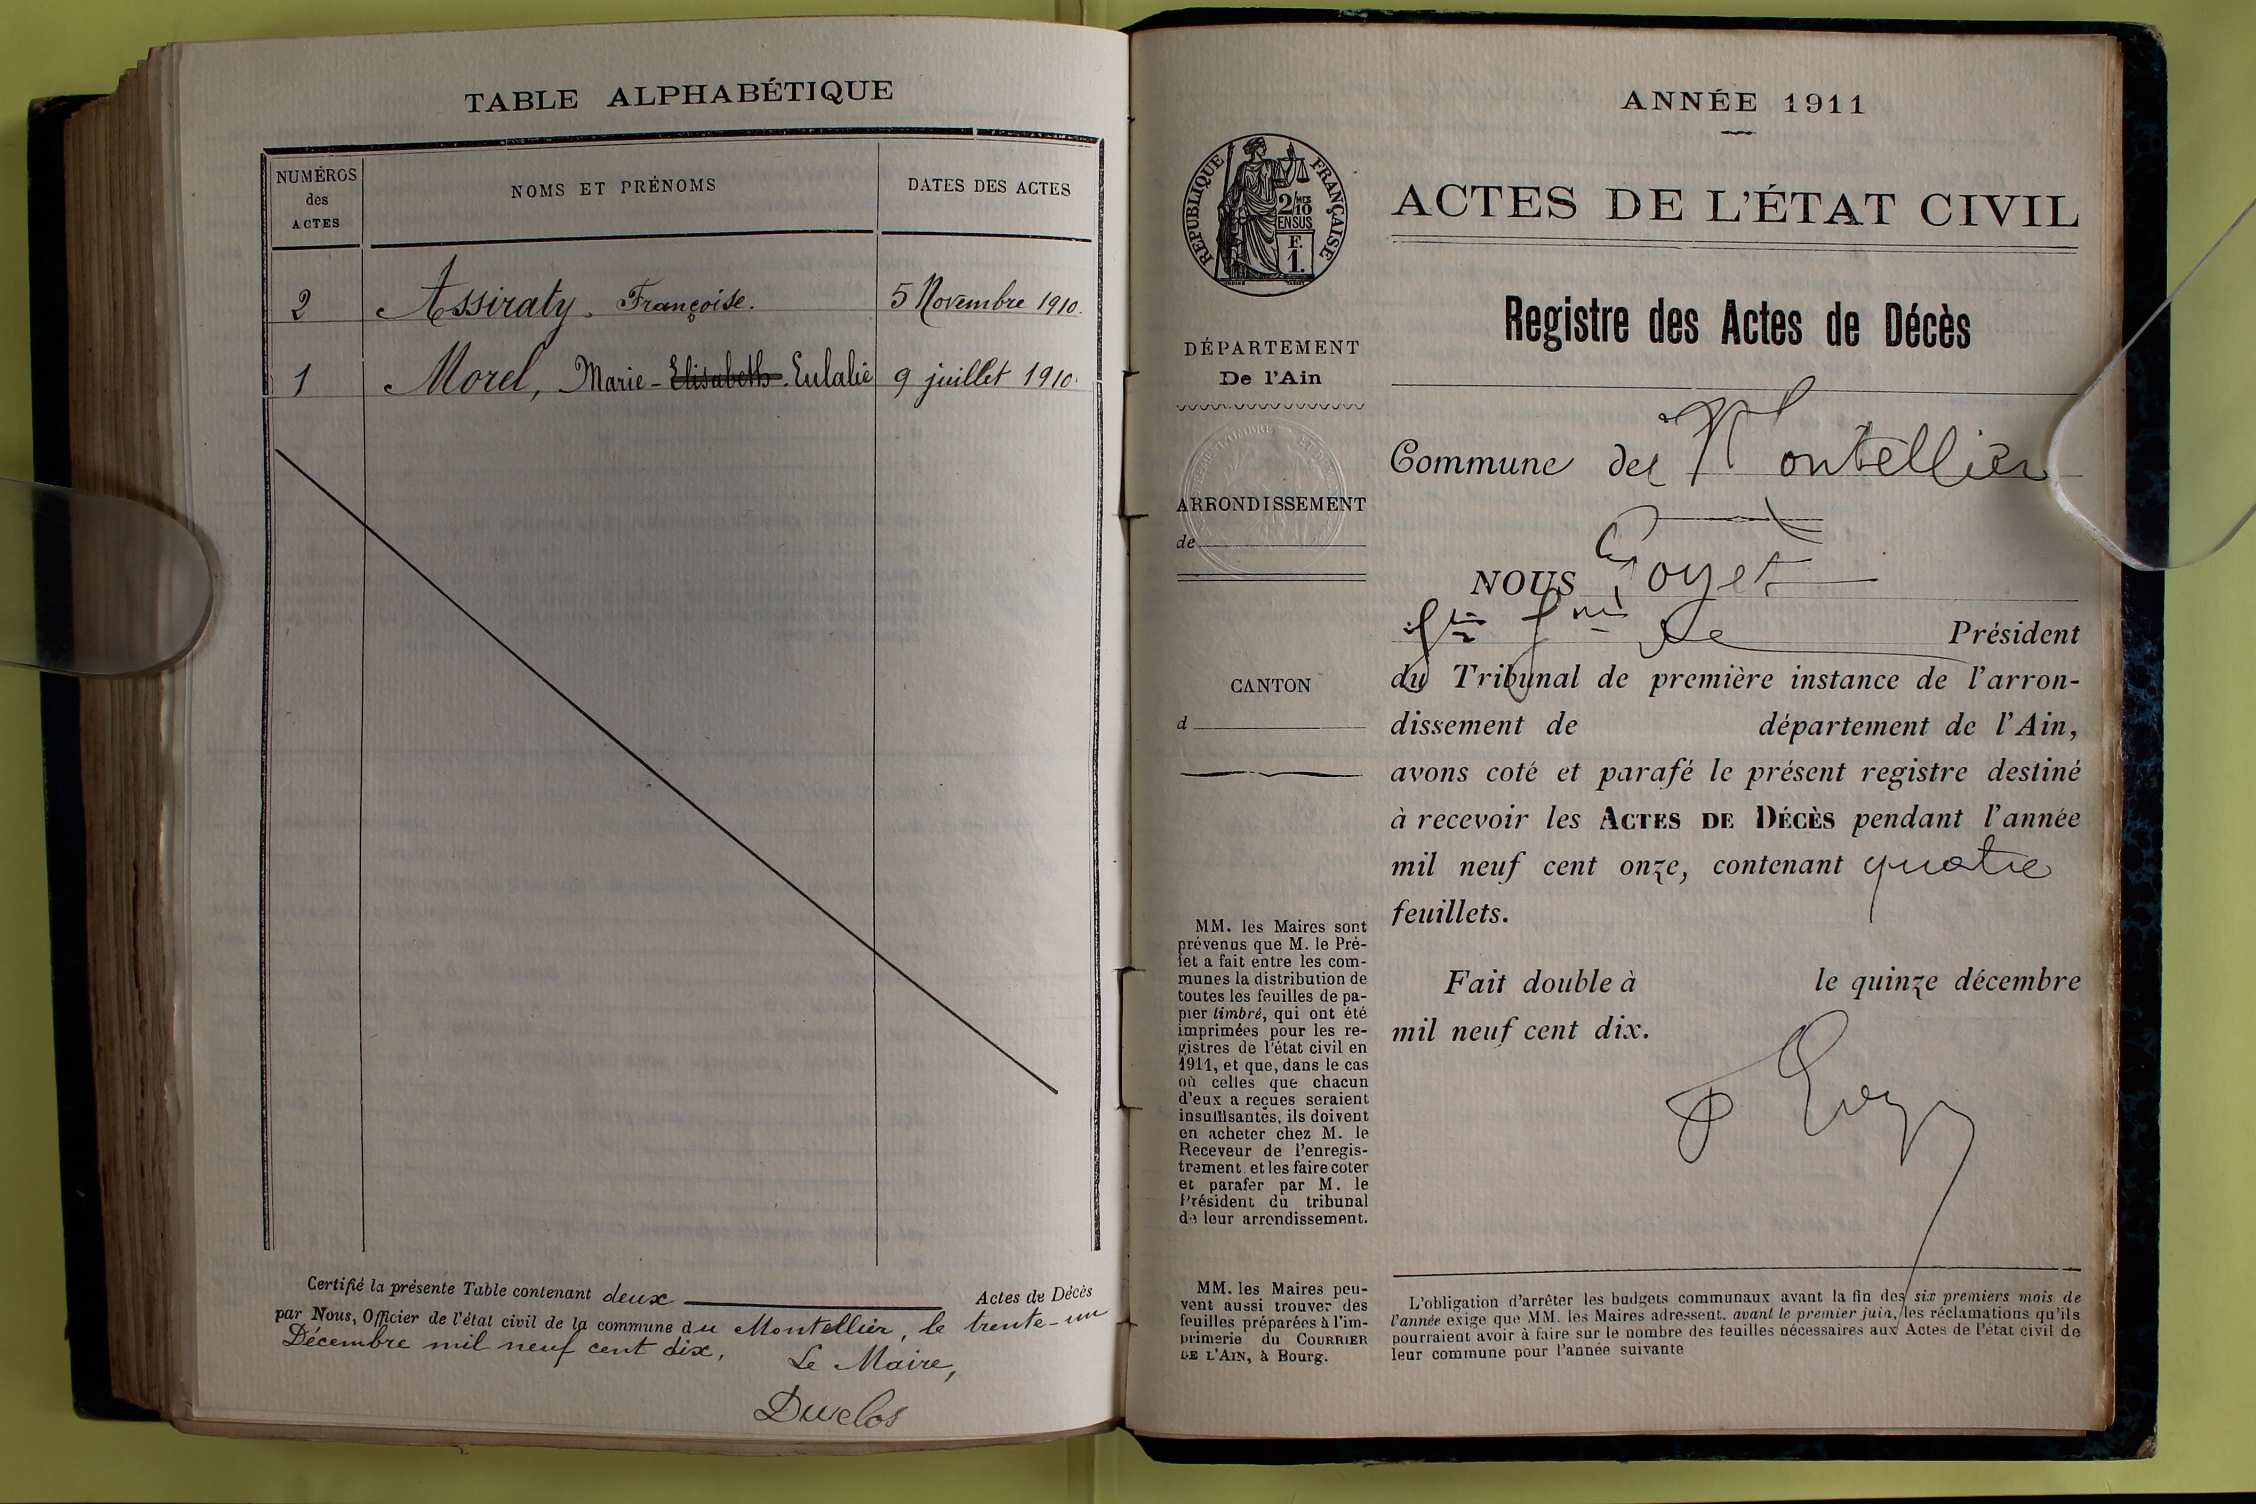 TABLE ALPHABÉTIQUE
NUMÉROS
des
ACTES
NOMS ET PRÉNOMS
DATES DES ACTES
2 Assiraty. Françoise. 5 Novembre 1910.
1 Morel, Marie - Elisabeth. Eulalie 9 juillet 1910.
Certifié la présente Table contenant deux Actes de Décès
par Nous, Officier de l'état civil de la commune du Montellier, le trente-un
Décembre mil neuf cent dix,
Le Maire,
Duclos
ANNÉE 1911
RÉPUBLIQUE FRANÇAISE
2/10 MES
EN SUS
F.
1.
ACTES DE L'ÉTAT CIVIL
Registre des Actes de Décès
DÉPARTEMENT
De l'Ain
ARRONDISSEMENT
de
CANTON
d
MM. les Maires sont
prévenus que M. le Pré-
fet a fait entre les com-
munes la distribution de
toutes les feuilles de pa-
pier timbré, qui ont été
imprimées pour les re-
gistres de l'état civil en
1911, et que, dans le cas
où celles que chacun
d'eux a reçues seraient
insuffisantes, ils doivent
en acheter chez M. le
Receveur de l'enregis-
trement et les faire coter
et parafer par M. le
Président du tribunal
de leur arrondissement.
MM. les Maires peu-
vent aussi trouver des
feuilles préparées à l'im-
primerie du COURRIER
DE L'AIN, à Bourg.
Commune de Montellier
NOUS Goyet
Président
du Tribunal de première instance de l'arron-
dissement de département de l'Ain,
avons coté et parafé le présent registre destiné
à recevoir les ACTES DE DÉCÈS pendant l'année
mil neuf cent onze, contenant quatre
feuillets.
Fait double à le quinze décembre
mil neuf cent dix.
L'obligation d'arrêter les budgets communaux avant la fin des six premiers mois de
l'année exige que MM. les Maires adressent, avant le premier juin, les réclamations qu'ils
pourraient avoir à faire sur le nombre des feuilles nécessaires aux Actes de l'état civil de
leur commune pour l'année suivante